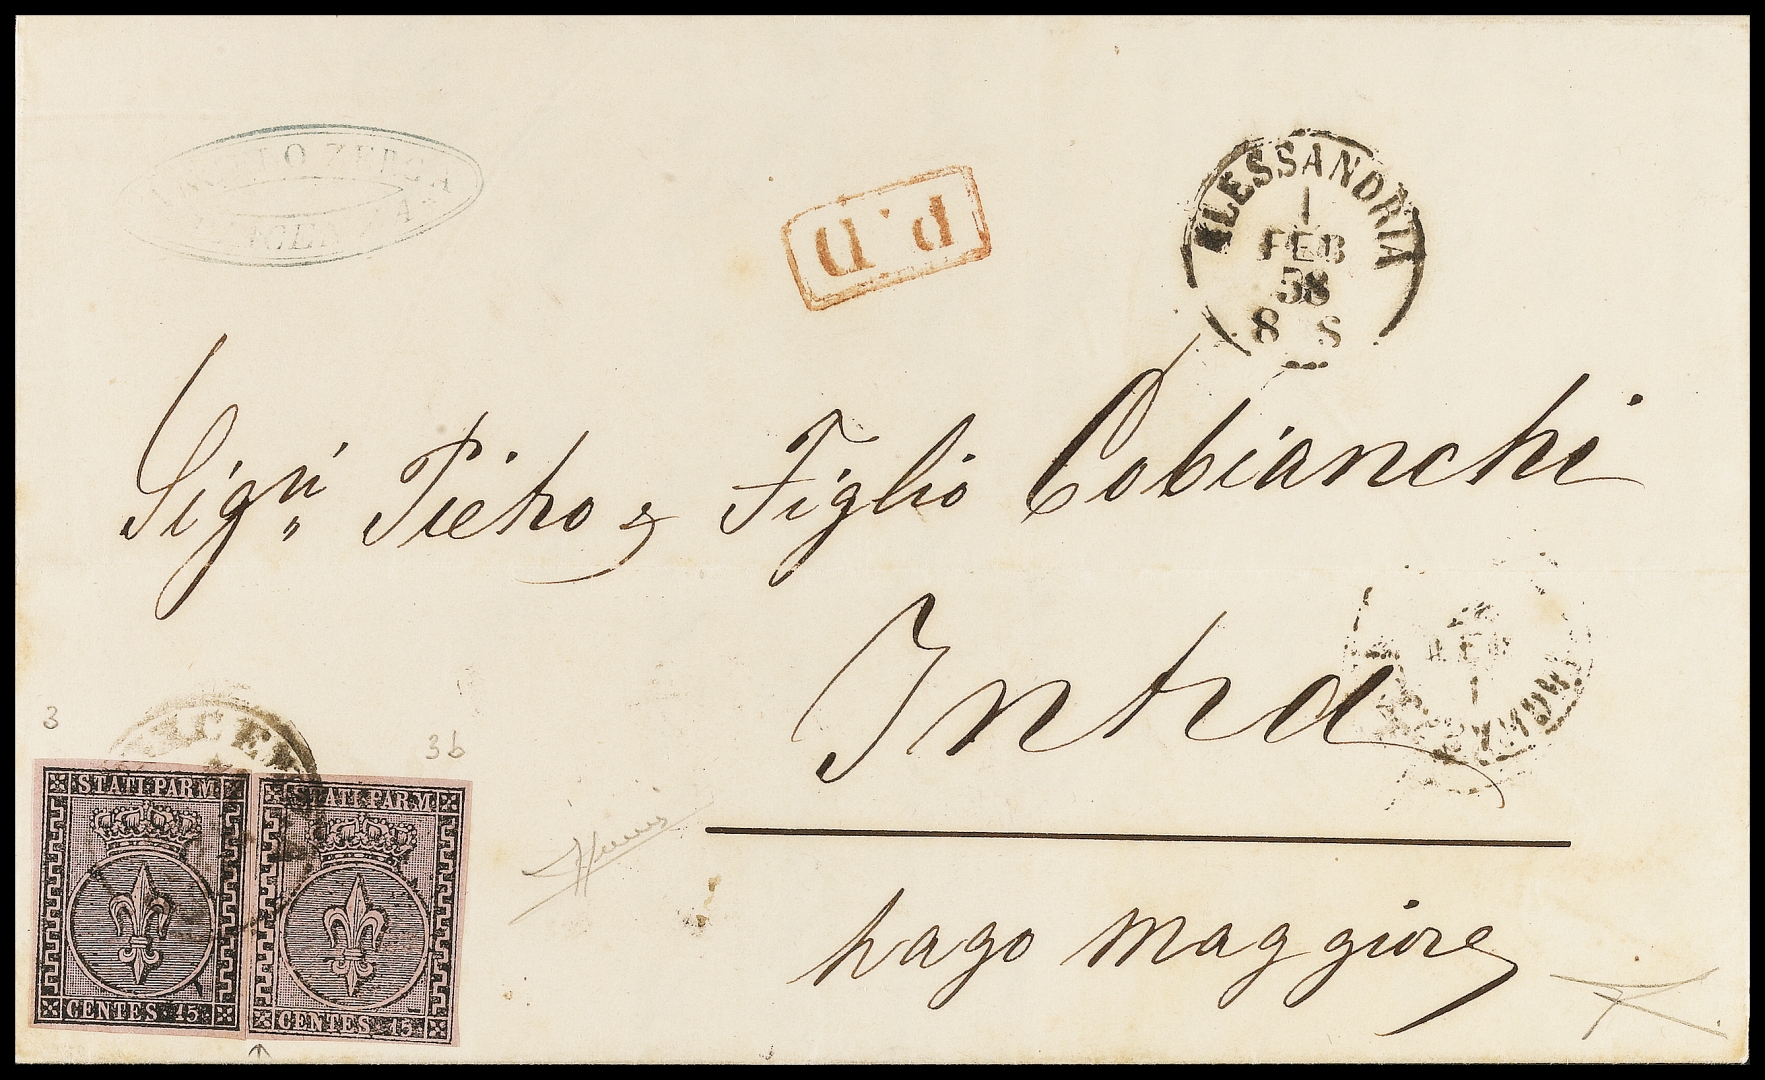 ANGELO ZERGA
PIACENZA
P.D
ALESSANDRIA
1
FEB
58
8 S
Sign.ri Pietro & Figlio Cobianchi
Intra
Lago Maggiore
3
3b
STATI PARM
CENTES 15
STATI PARM
CENTES 15